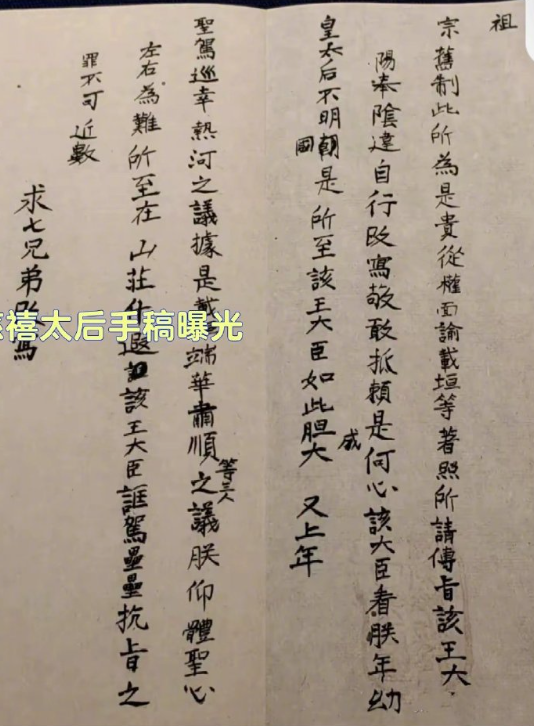 祖
宗舊制此所為是貴從權面諭載垣等著照所請傳旨該王大
陽奉陰違自行改寫敬敢抵賴是何心該大臣看朕年幼
皇太后不明朝國是所至該王大臣如此胆大 又上年
威
聖駕巡幸熱河之議據是載端華肅順等三人之議朕仰體聖心
左右為難所至在山莊升遐該王大臣誆駕壘壘抗旨之
罪不可近數
求七兄弟改寫
禧太后手稿曝光